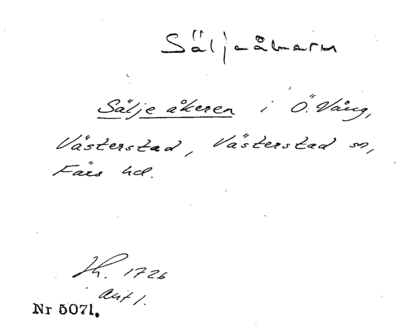 Säljeåkern
Sälje åkeren i Ö. Vång,
Västerstad, Västerstad sn,
Färs hd.
1726
akt 1.
Nr 5071.